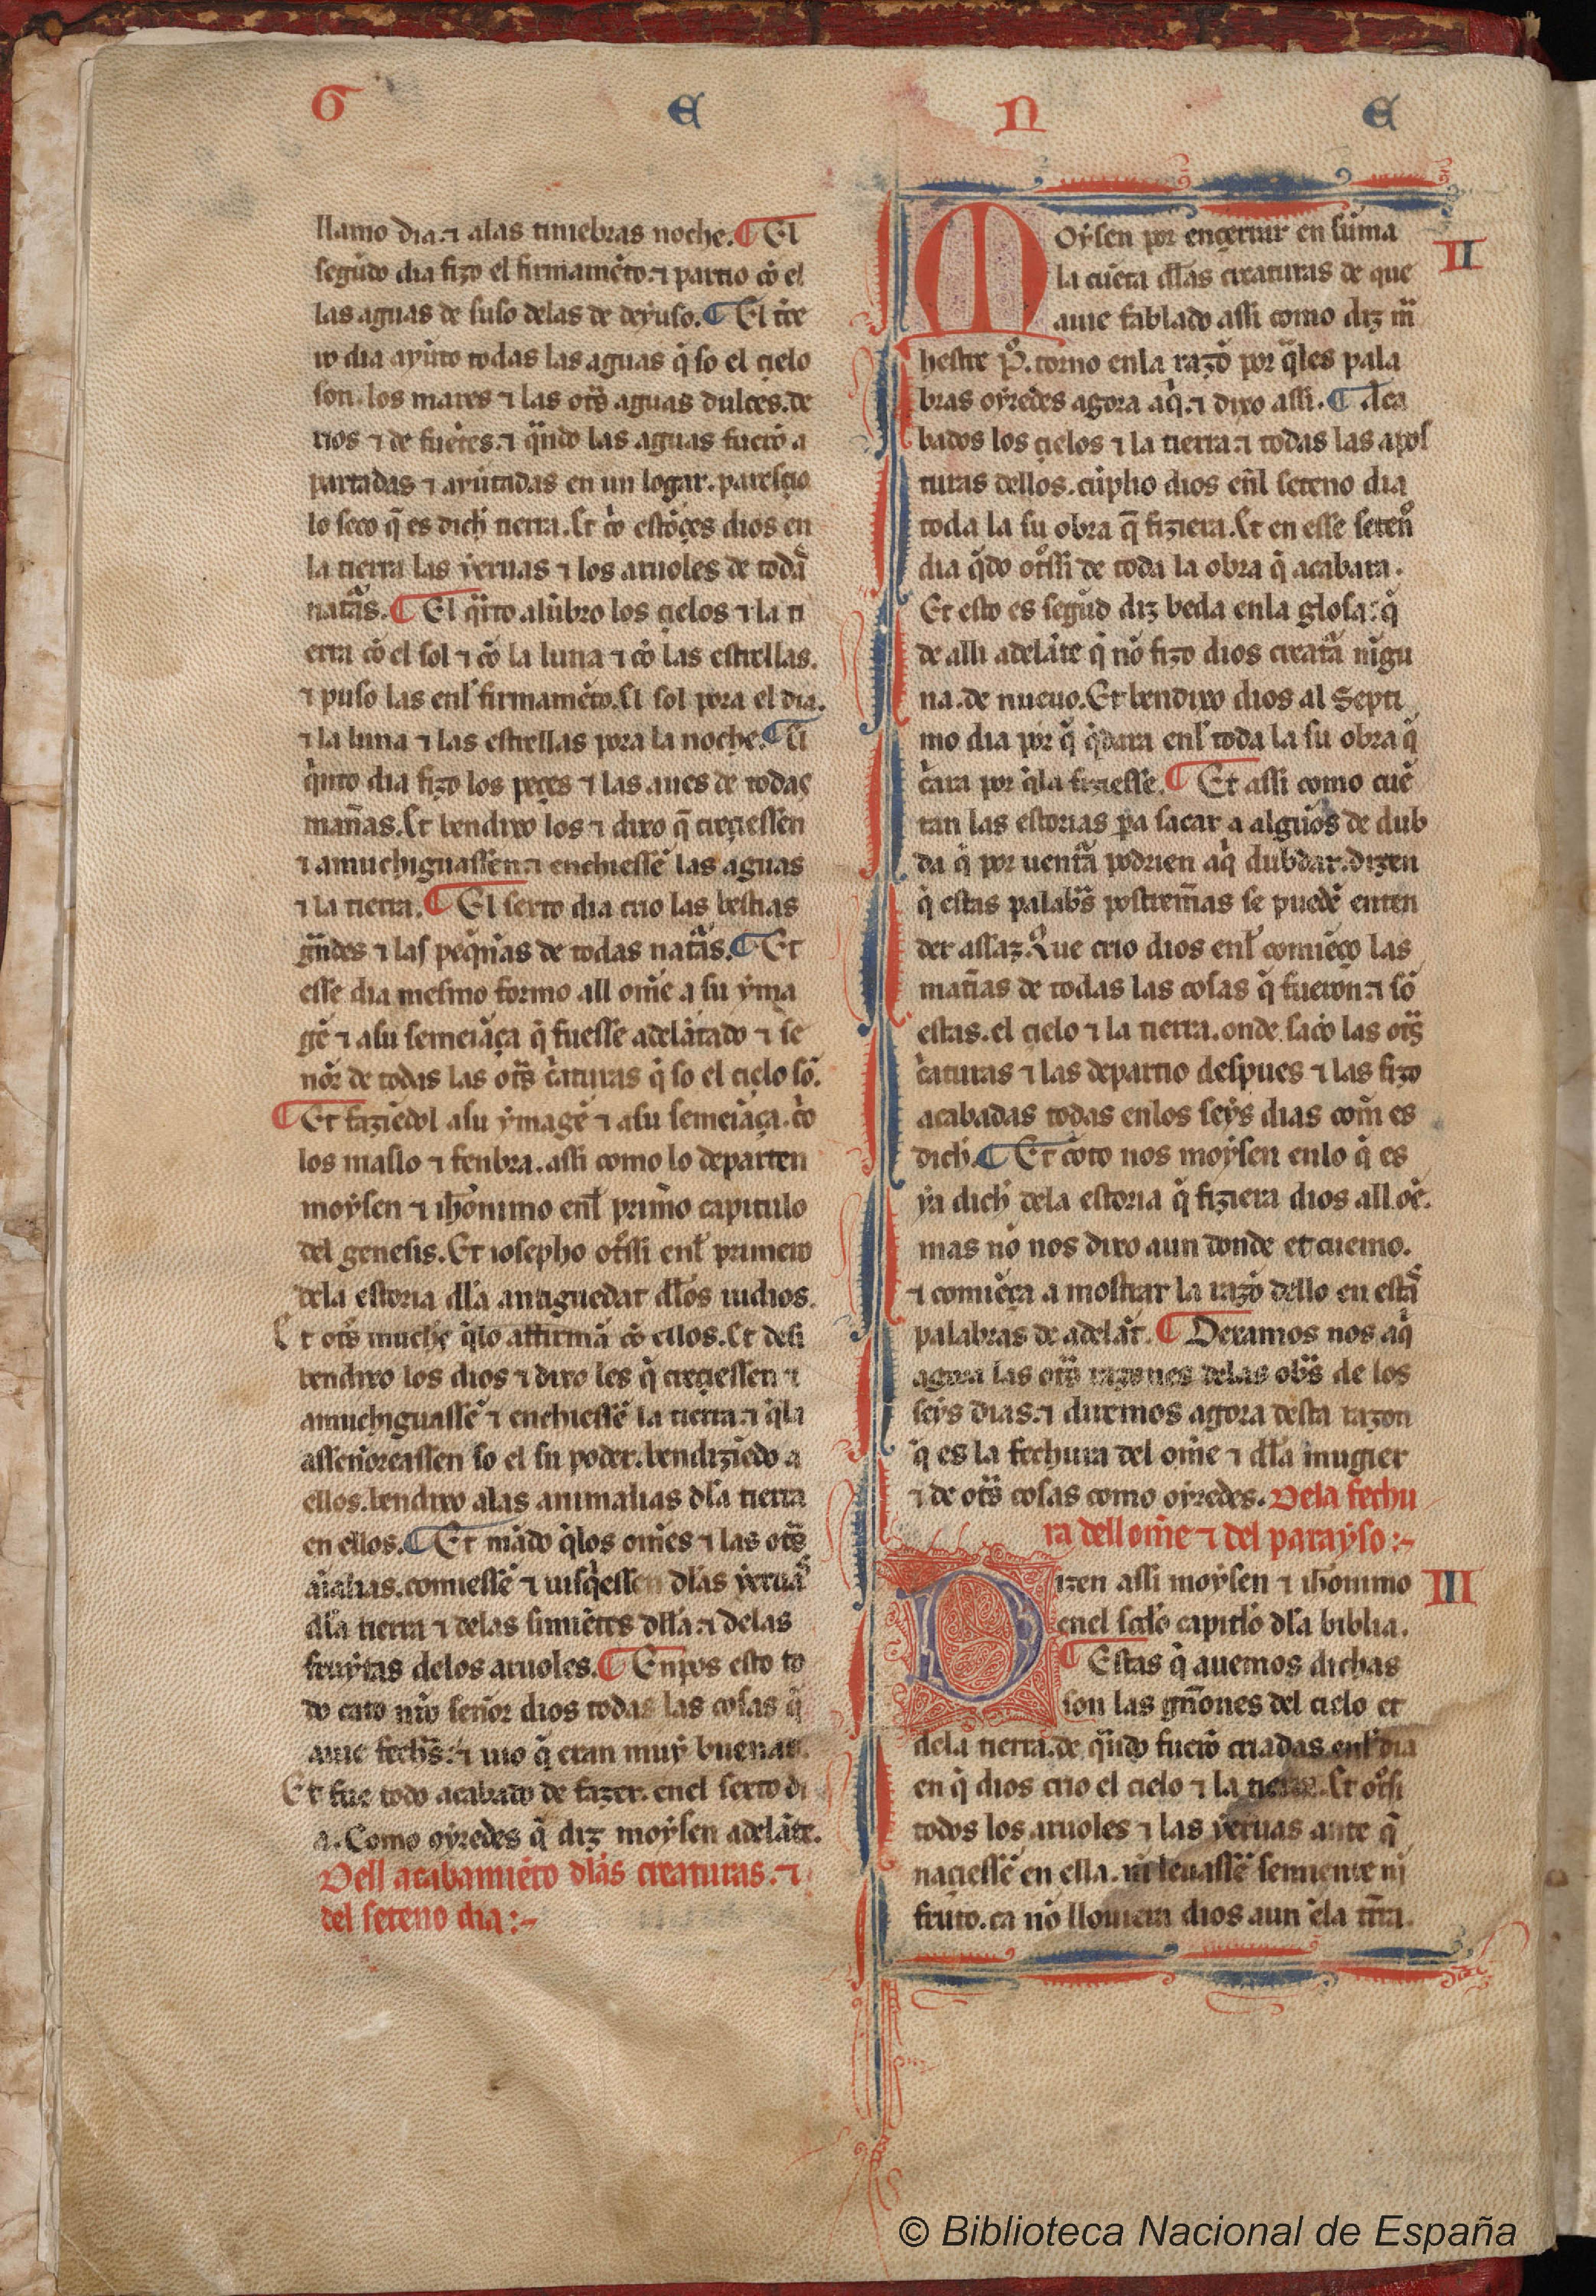 G E N E
llamo dia. ⁊ alas tiniebras noche. ¶ El
segũdo dia fizo el firmamẽto. ⁊ partio cõ el
las aguas de suso delas de deyuso. ¶ El terce
ro dia ayũto todas las aguas q̃ so el çielo
son. los mares ⁊ las ot̃s aguas dulçes. de
rios ⁊ de fuẽtes. ⁊ q̃ndo las aguas fuerõ a
partadas ⁊ ayũtadas en un logar. paresçio
lo seco q̃ es dich̃ tierra. Et c̃o estõçes dios en
la tierra las yeruas ⁊ los aruoles de todas
nat̃as. ¶ El q̃rto alũbro los çielos ⁊ la ti
erra cõ el sol ⁊ cõ la luna ⁊ cõ las estrellas.
⁊ puso las enl̃ firmamẽto. El sol pora el dia.
⁊ la luna ⁊ las estrellas pora la noche. ¶ El
q̃nto dia fizo los peçes ⁊ las aues de todas
mañas. Et bendixo los ⁊ dixo q̃ creçiessen
⁊ amuchiguassen. ⁊ enchiessẽ las aguas
⁊ la tierra. ¶ El sexto dia crio las bestias
g̃ndes ⁊ las peq̃ñas de todas nat̃as. ¶ Et
esse dia mesmo formo all om̃e a su yma
gẽ ⁊ asu semeiãça q̃ fuesse adelãtado ⁊ se
ñor de todas las ot̃s c̃aturas q̃ so el çielo sõ.
¶ Et faziẽdol asu ymagẽ ⁊ asu semeiãça. c̃o
los maslo ⁊ fenbra. assi como lo departen
moysen ⁊ ih̃onimo enl̃ prim̃o capitulo
del genesis. Et iosepho ot̃ssi enl̃ primero
dela estoria dl̃a antiguedat dl̃os iudios.
Et ot̃s much̃ q̃lo affirmã cõ ellos. Et desi
bendixo los dios ⁊ dixo les q̃ creçiessen ⁊
amuchiguassẽ ⁊ enchiessẽ la tierra. ⁊ q̃la
asseñoreassen so el su poder. bendiziẽdo a
ellos. bendixo alas animalias dl̃a tierra
en ellos. ¶ Et mãdo q̃los om̃es ⁊ las ot̃s
aĩalias. comiessẽ ⁊ uisq̃essen dl̃as yeruas
dl̃a tierra ⁊ delas simiẽtes dl̃la. ⁊ delas
fruytas delos aruoles. ¶ Enpos esto to
do cato nr̃o señor dios todas las cosas q̃
auie fech̃s. ⁊ uio q̃ eran muy buenas.
Et fue todo acabado de fazer. enel sexto di
a. Como oyredes q̃ diz moysen adelãte.
Dell acabamiẽto dl̃as creaturas. ⁊
del seteno dia :~
II
Moysen por ençerrar en suma
la cuẽta dl̃las creaturas de que
auie fablado assi como diz m̃
hestre P̃o. torno enla razõ por q̃les pala
bras oyredes agora aq̃. ⁊ dixo assi. ¶ Aca
bados los çielos ⁊ la tierra. ⁊ todas las apos
turas dellos. cũplio dios enl̃ seteno dia
toda la su obra q̃ fiziera. Et en esse seteno
dia q̃do ot̃ssi de toda la obra q̃ acabara.
Et esto es segũd diz beda enla glosa: q̃
de alli adelãte q̃ nõ fizo dios creat̃a nĩgu
na. de nueuo. Et bendixo dios al Septi
mo dia por q̃ q̃dara enl̃ toda la su obra q̃
c̃ara por q̃la fiziesse. ¶ Et assi como cuẽ
tan las estorias p̃a sacar a algũos de dub
da q̃ por uent̃a podrien aq̃ dubdar. dizen
q̃ estas palabs̃ postrem̃as se puedẽ enten
der assaz. Que crio dios enl̃ comiẽço las
mat̃ias de todas las cosas q̃ fueron. ⁊ sõ
estas. el çielo ⁊ la tierra. onde saco las ot̃s
c̃aturas ⁊ las departio despues ⁊ las fizo
acabadas todas enlos seys dias com̃ es
dich̃. ¶ Et cõto nos moysen enlo q̃ es
ya dich̃ dela estoria q̃ fiziera dios all oẽ.
mas nõ nos dixo aun donde et cuemo.
⁊ comiẽça a mostrar la razõ dello en estas
palabras de adelãt. ¶ Dexamos nos aq̃
agora las ot̃s razones delas obs̃ de los
seys dias. ⁊ diremos agora desta razon
q̃ es la fechura del om̃e ⁊ dl̃la mugier
⁊ de ot̃s cosas como oyredes. Dela fechu
ra dell om̃e ⁊ del parayso :~
III
Dizen assi moysen ⁊ ih̃onimo
enel sc̃do capitl̃o dl̃a biblia.
¶ Estas q̃ auemos dichas
son las gñ̃ones del cielo et
dela tierra. de q̃ndo fuerõ criadas enl̃ dia
en q̃ dios crio el cielo ⁊ la tierra. Et ot̃si
todos los aruoles ⁊ las yeruas ante q̃
naçiessẽ en ella. ni leuassẽ semiente ni
fruto. ca nõ llouiera dios aun ẽla tr̃ra.
© Biblioteca Nacional de España